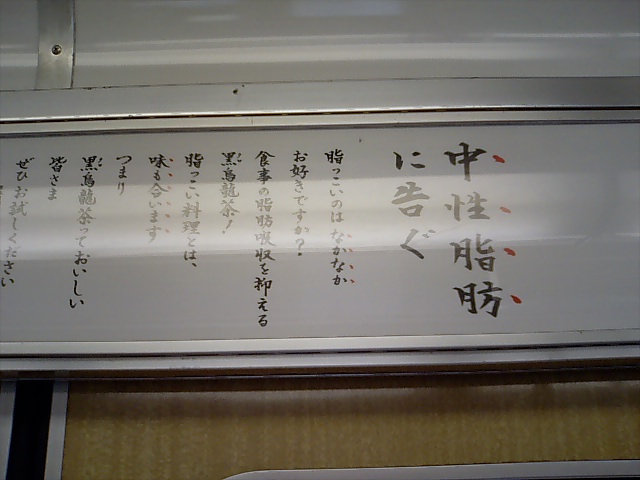 中性脂肪
に告ぐ
脂っこいのはなかなか
お好きですか?
食事の脂肪吸収を抑える
黒烏龍茶!
脂っこい料理とは、
味も合います
つまり
黒烏龍茶っておいしい
皆さま
ぜひお試しください